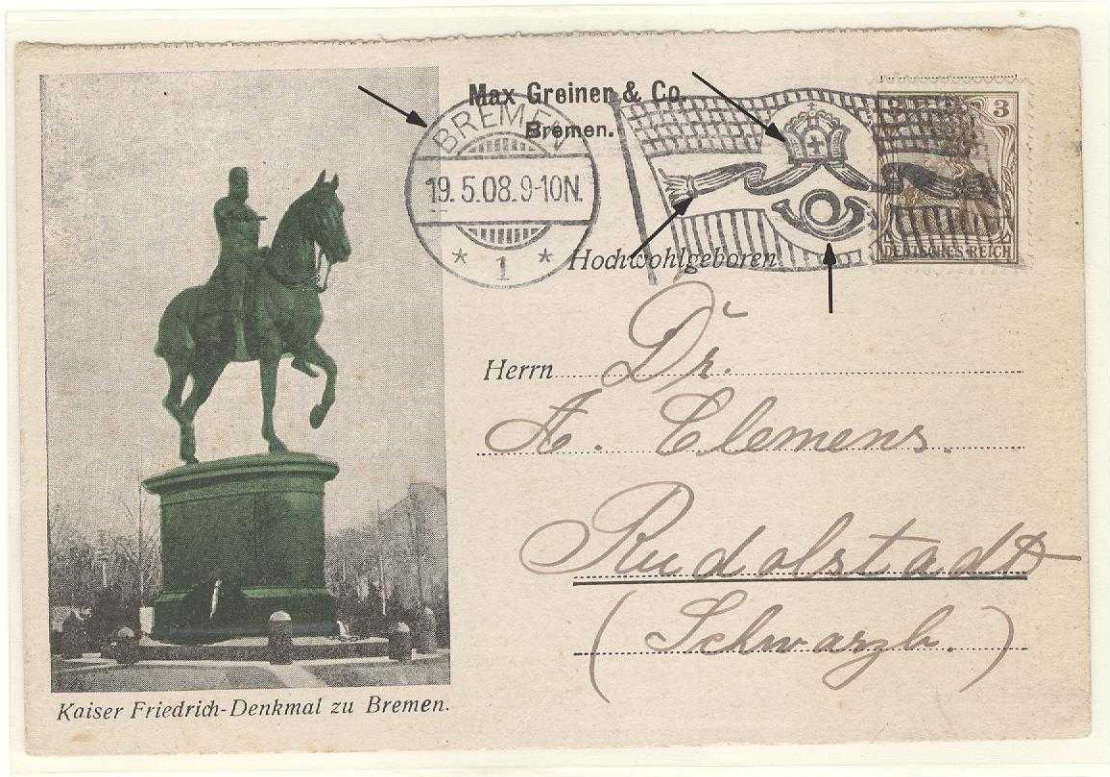 Max Greiner & Co.
Bremen.
BREMEN
19.5.08.9-10N.
* 1 *
3
DEUTSCHES REICH
Hochwohlgeboren
Herrn Dr.
A. Clemens.
Rudolstadt
(Schwarzb.)
Kaiser Friedrich-Denkmal zu Bremen.